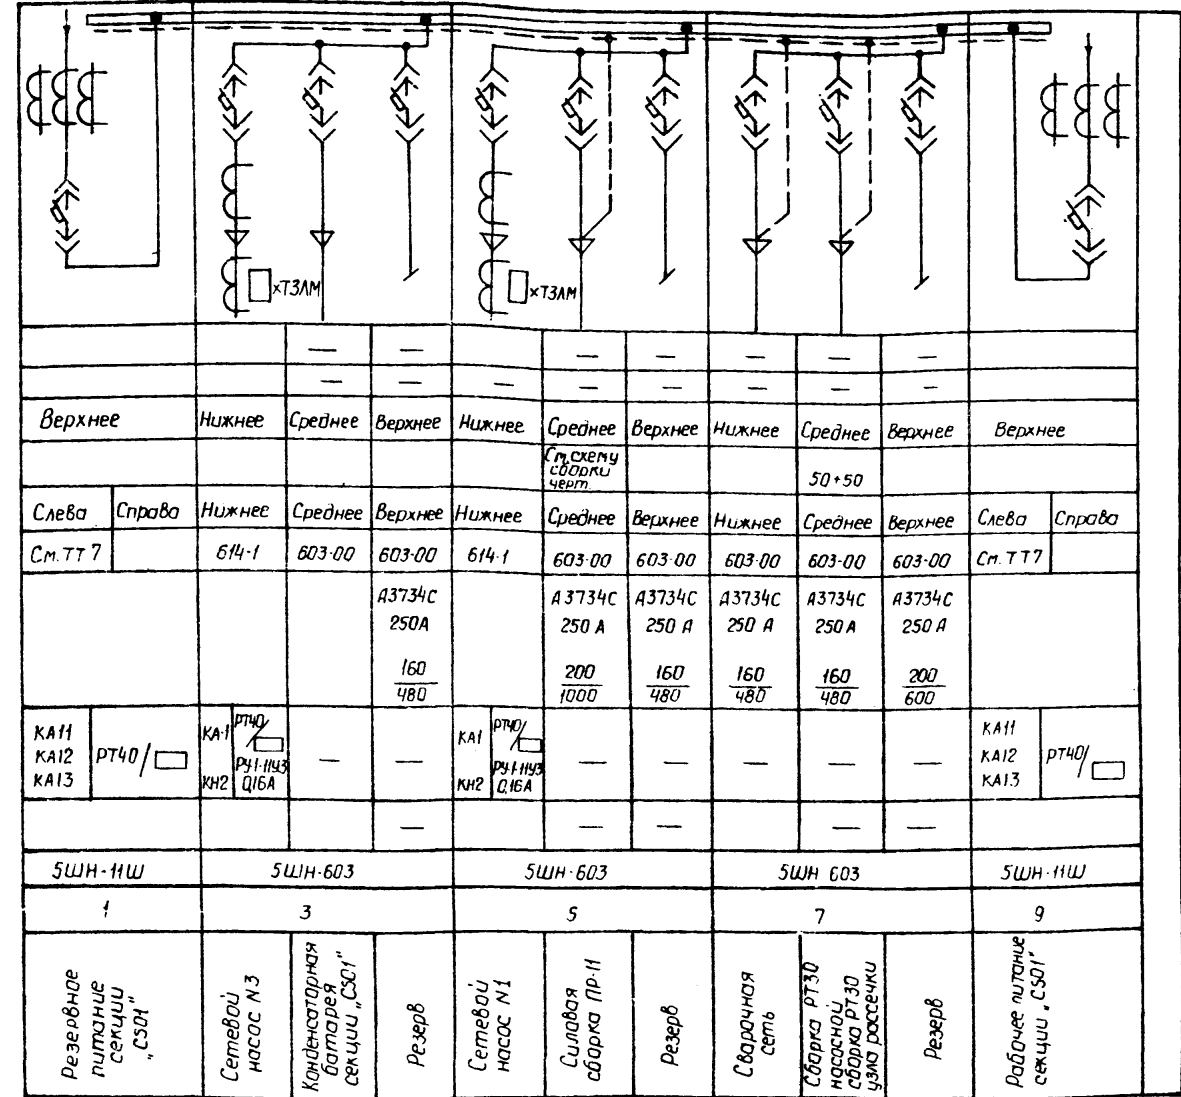 хТЗЛМ
хТЗЛМ
— —
— — —
— — —
— — — — — — —
— — —
Верхнее Нижнее Среднее Верхнее Нижнее Среднее Верхнее Нижнее Среднее Верхнее Верхнее
См. схему
сборки
черт.
50+50
Слева Справа Нижнее Среднее Верхнее Нижнее Среднее Верхнее Нижнее Среднее Верхнее Слева Справа
См. ТТ 7 614-1 603-00 603-00 614-1 603-00 603-00 603-00 603-00 603-00 См. ТТ7
А3734С А3734С А3734С А3734С А3734С А3734С
250А 250 А 250 А 250 А 250 А 250 А
160 200 160 160 160 200
480 1000 480 480 480 600
КА11
КА12
КА13
РТ40/
КА-1
РТ40/
РУ1-11УЗ
КН2 0,16А
— —
КА1
РТ40/
РУ1-11УЗ
КН2 0,16А
— — — — —
КА11
КА12
КА13
РТ40/
— — — — —
5ШН-11Ш 5ШН-603 5ШН-603 5ШН 603 5ШН-11Ш
1 3 5 7 9
Резервное
питание
секции
„CS01"
Сетевой
насос N3
Конденсаторная
батарея
секции „CS01"
Резерв
Сетевой
насос N1
Силовая
сборка ПР-11
Резерв
Сварочная
сеть
Сборка РТ30
насосной
сборка РТ30
узла рассечки
Резерв
Рабочее питание
секции „CS01"